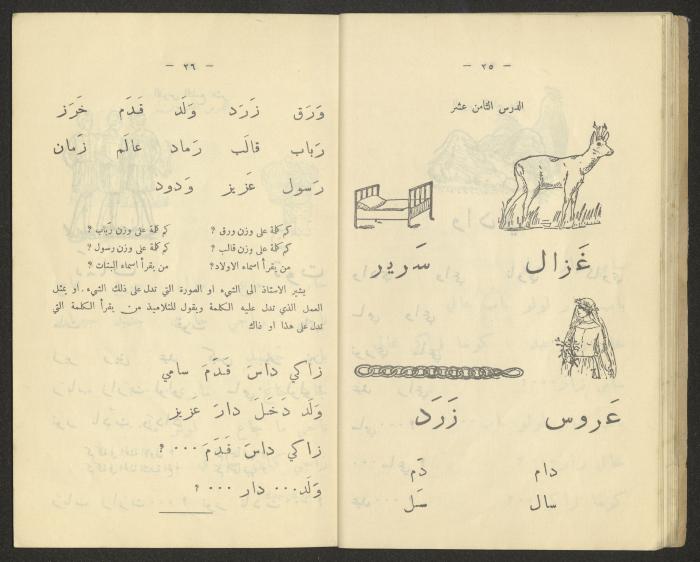 - ٣٥ -
الدرس الثامن عشر
غَزال سَرير
عَروس زَرَد
دام دَم
سال سَل
- ٣٦ -
وَرَق زَرَد وَلَد قَدَم خَرَز
رَباب قالَب رَماد عالَم زَمان
رَسول عَزيز وَدود
كم كلمة على وزن ورق ؟ كم كلمة على وزن رَباب ؟
كم كلمة على وزن قالب ؟ كم كلمة على وزن رسول ؟
من يقرأ اسماء الاولاد ؟ من يقرأ اسماء البنات ؟
يشير الاستاذ الى الشيء او الصورة التي تدل على ذلك الشيء . او يمثل
العمل الذي تدل عليه الكلمة ويقول للتلاميذ من يقرأ الكلمة التي
تدل على هذا او ذاك
زاكي داسَ قَدَمَ سامي
وَلَد دَخَلَ دارَ عَزيز
زاكي داسَ قَدَمَ ... ؟
وَلَد ... دار ... ؟